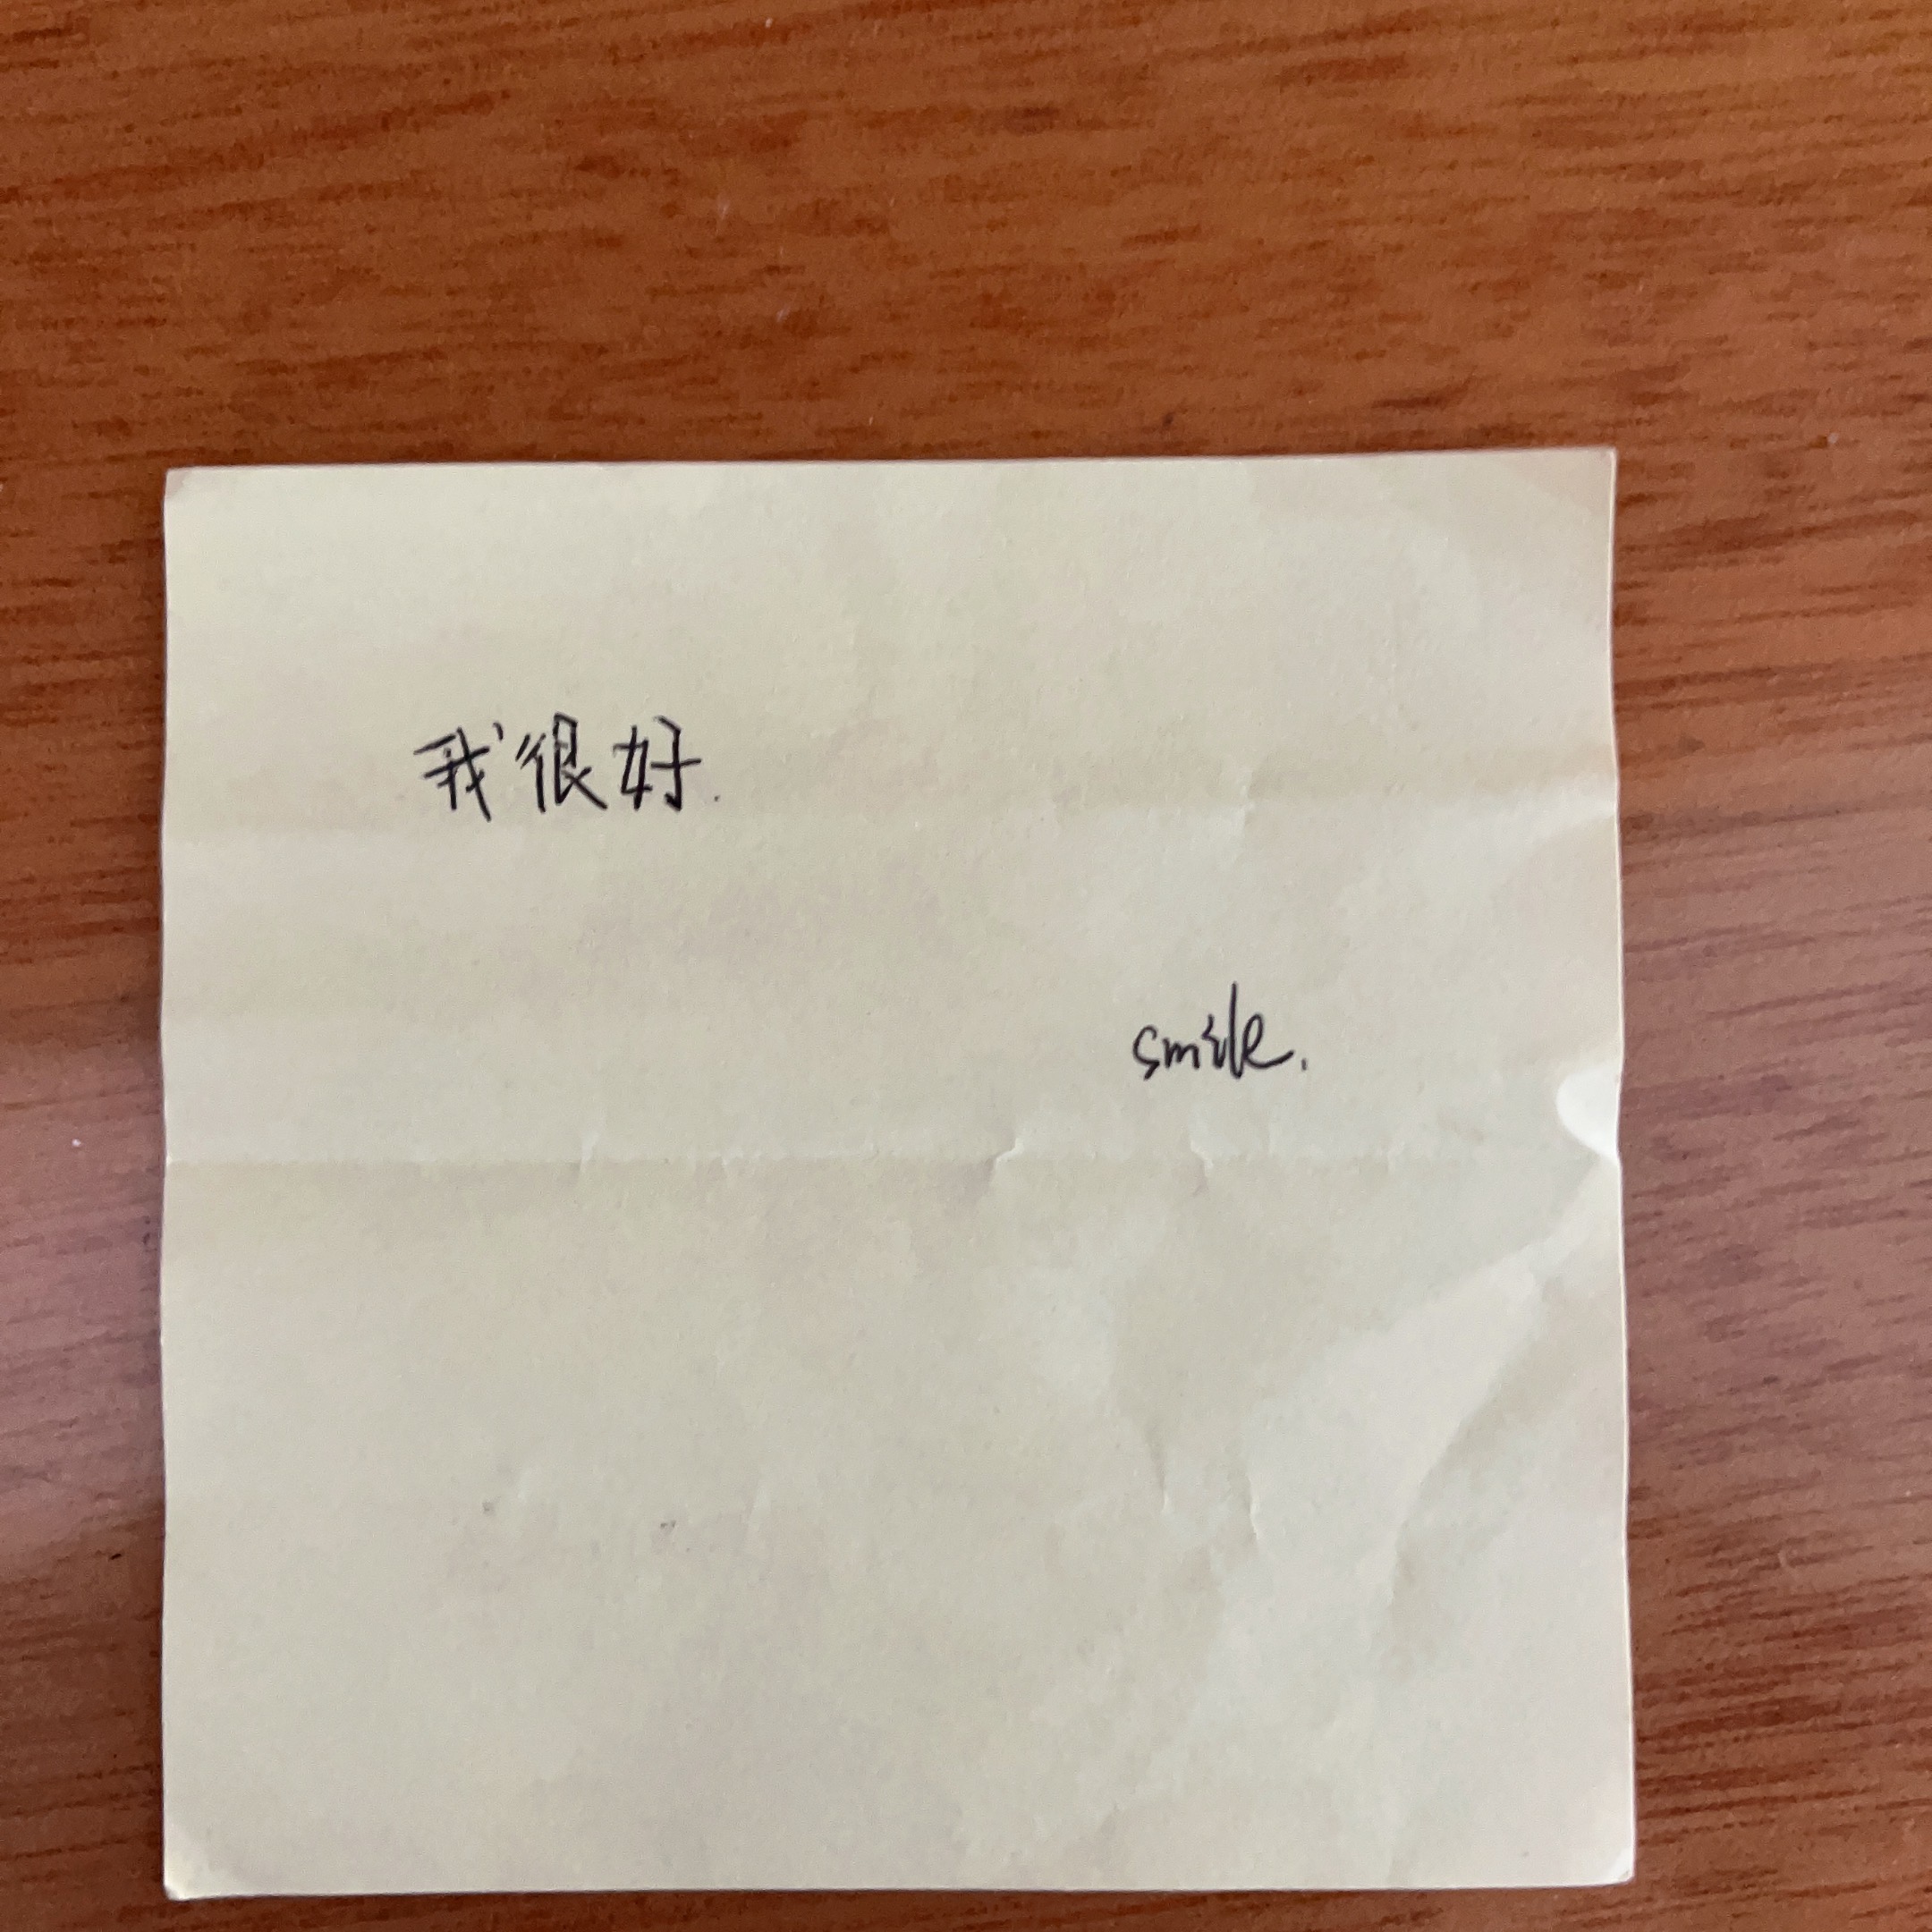 我很好.
smile.